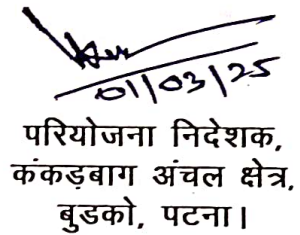 01/03/25
परियोजना निदेशक,
कंकड़बाग अंचल क्षेत्र,
बुडको, पटना।